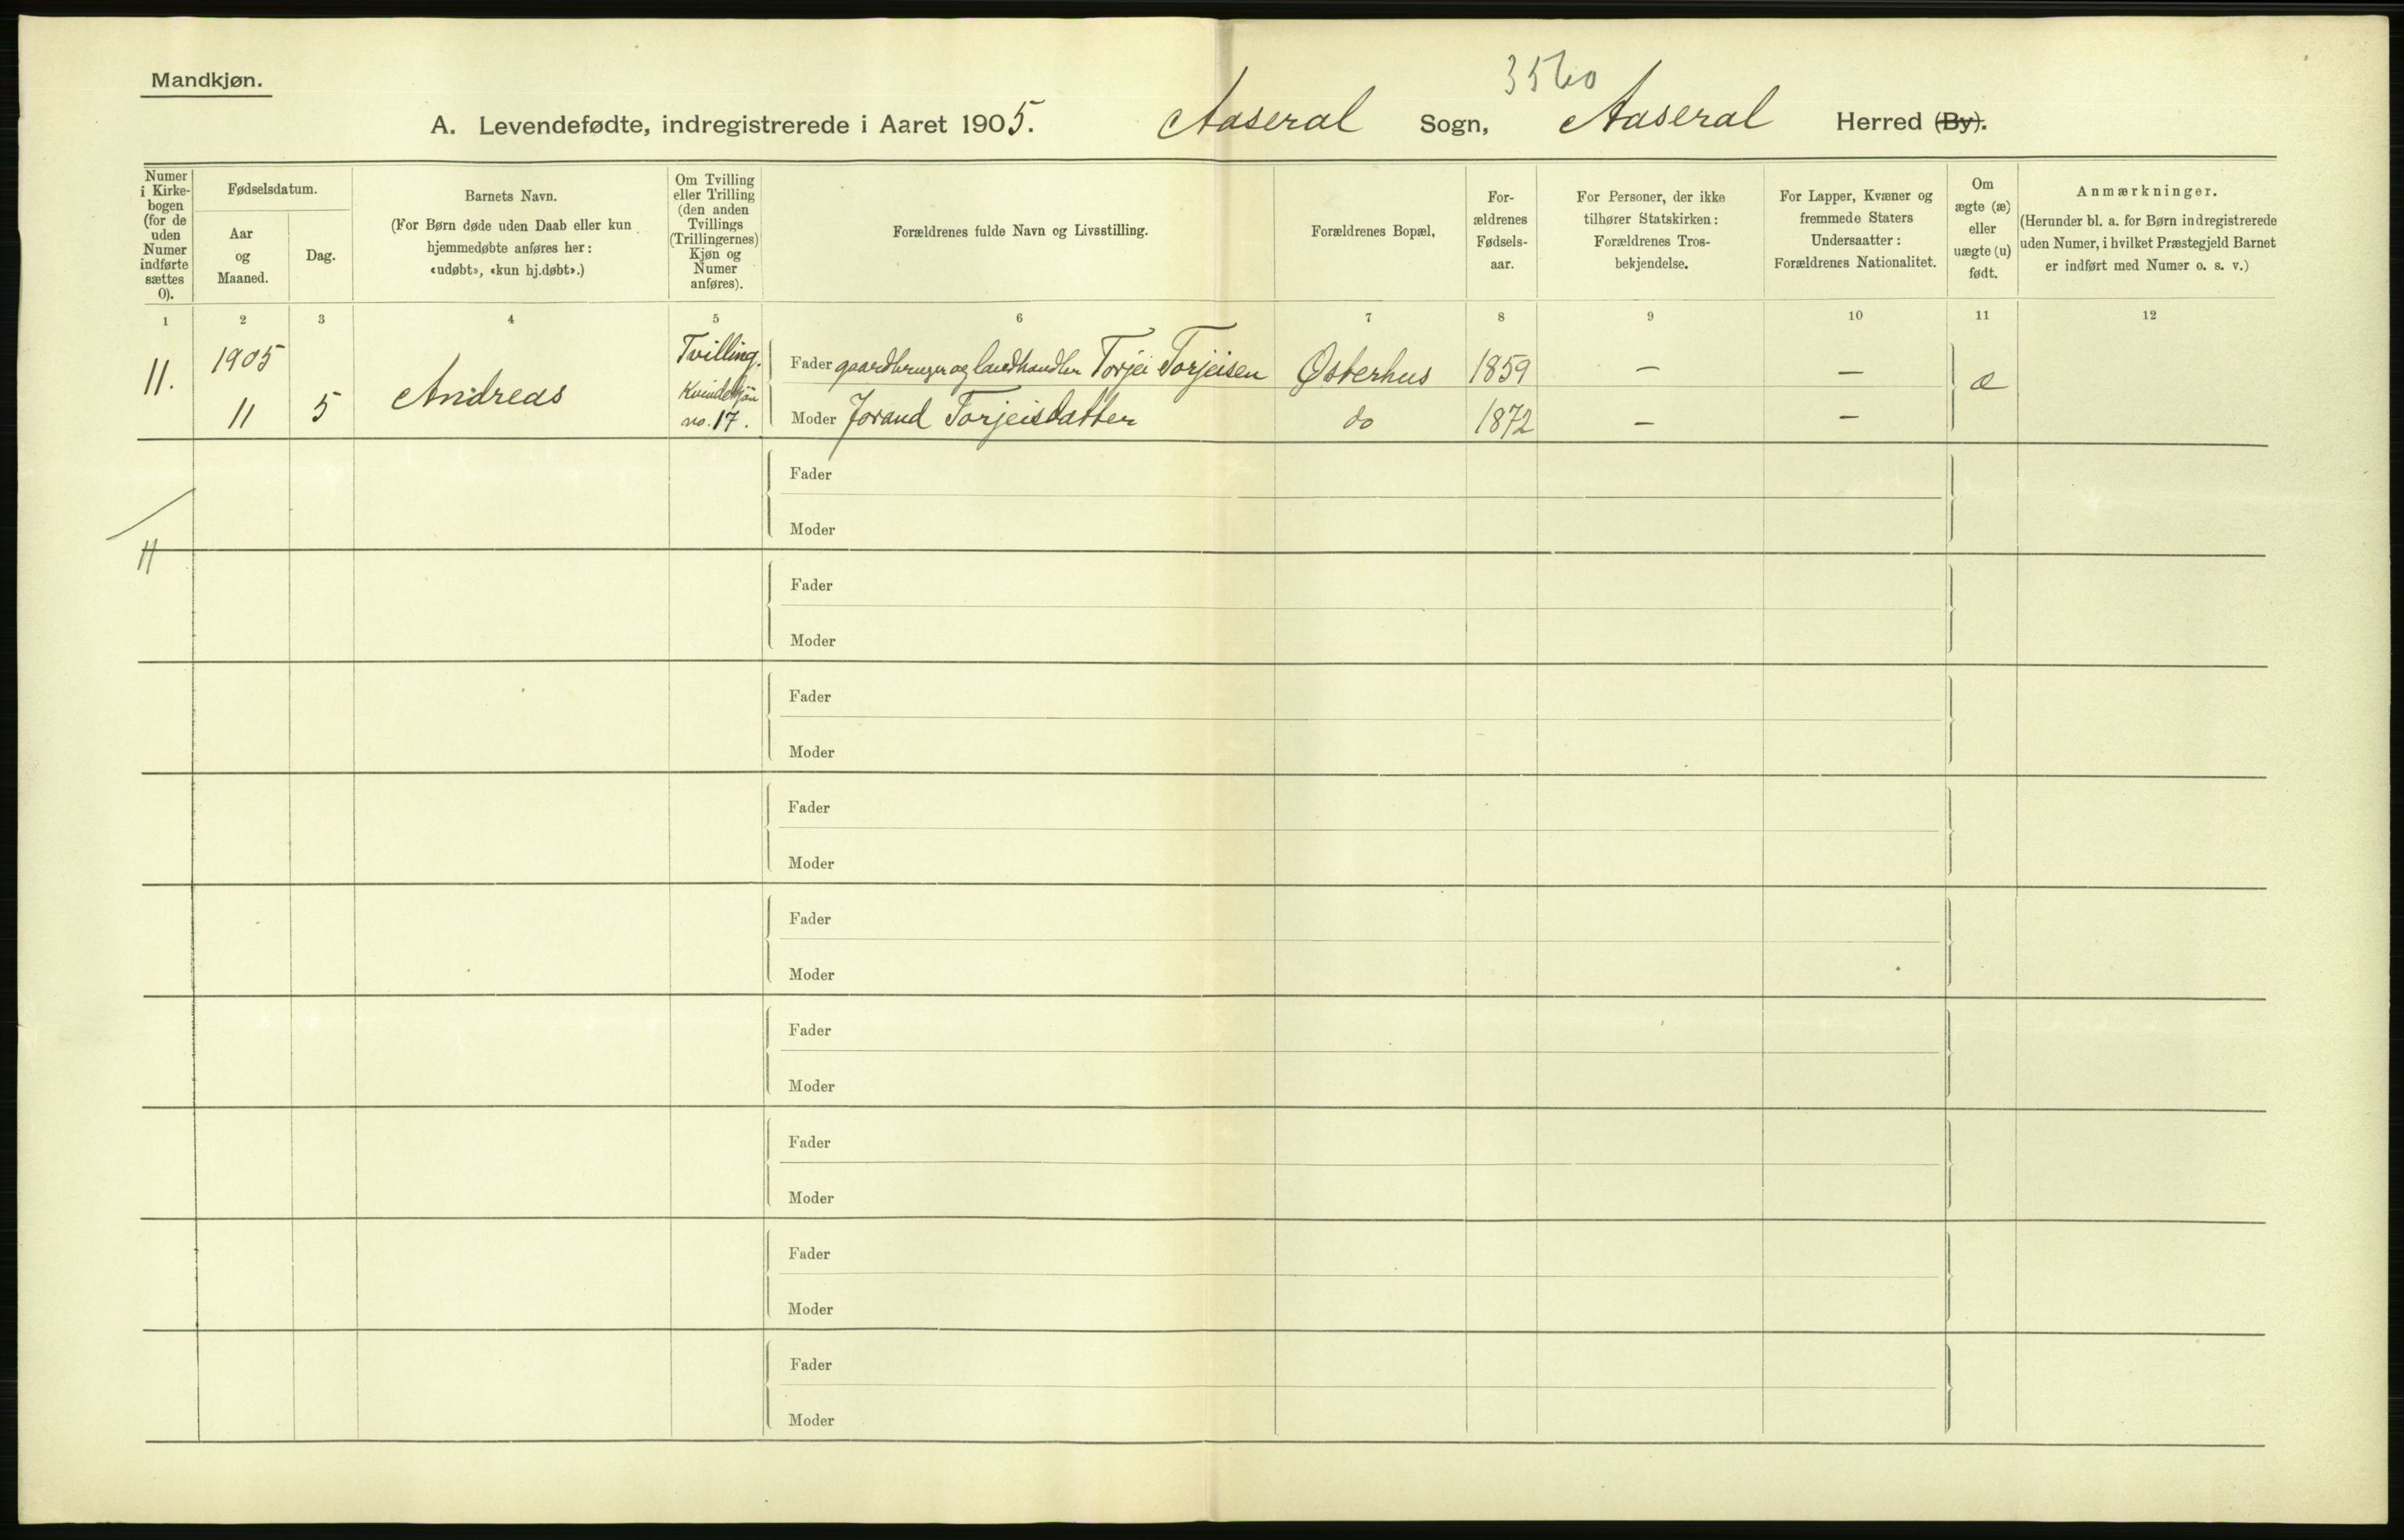 Mandkjøn.
3560
A. Levendefødte, indregistrerede i Aaret 1905. Aaseral Sogn, Aaseral Herred (By).
Numer i Kirkebogen (for de uden Numer indførte sættes 0).
Fødselsdatum.
Aar og Maaned.
Dag.
Barnets Navn.
(For Børn døde uden Daab eller kun hjemmedøbte anføres her: «udøbt», «kun hj.døbt».)
Om Tvilling eller Trilling (den anden Tvillings (Trillingernes) Kjøn og Numer anføres).
Forældrenes fulde Navn og Livsstilling.
Forældrenes Bopæl,
Forældrenes Fødselsaar.
For Personer, der ikke tilhører Statskirken: Forældrenes Trosbekjendelse.
For Lapper, Kvæner og fremmede Staters Undersaatter: Forældrenes Nationalitet.
Om ægte (æ) eller uægte (u) født.
Anmærkninger.
(Herunder bl. a. for Børn indregistrerede uden Numer, i hvilket Præstegjeld Barnet er indført med Numer o. s. v.)
1 2 3 4 5 6 7 8 9 10 11 12
11. 1905 Tvilling. Fader gaardbruger og landhandler Torjei Torjeisen Østerhus 1859 — — æ
11 5 Andreas Kvindekjön no. 17. Moder Jorand Torjeisdatter do 1872 — —
Fader
Moder
11
Fader
Moder
Fader
Moder
Fader
Moder
Fader
Moder
Fader
Moder
Fader
Moder
Fader
Moder
Fader
Moder